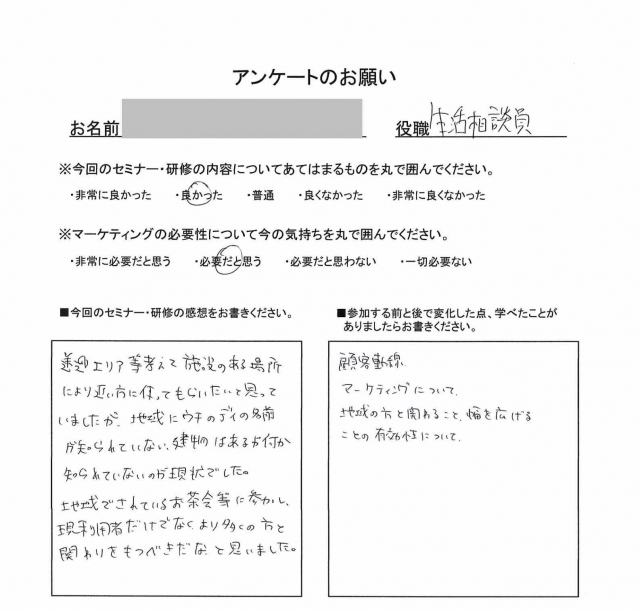 アンケートのお願い
お名前 役職 生活相談員
※今回のセミナー・研修の内容についてあてはまるものを丸で囲んでください。
・非常に良かった ・良かった ・普通 ・良くなかった ・非常に良くなかった
※マーケティングの必要性について今の気持ちを丸で囲んでください。
・非常に必要だと思う ・必要だと思う ・必要だと思わない ・一切必要ない
■今回のセミナー・研修の感想をお書きください。
送迎エリア等考えて施設のある場所
により近い方に使ってもらいたいと思って
いましたが、地域にウチのデイの名前
が知られていない、建物はあるが何か
知られていないのが現状でした。
地域でされているお茶会等に参加し、
現利用者だけでなく、より多くの方と
関わりをもつべきだな と思いました。
■参加する前と後で変化した点、学べたことが
ありましたらお書きください。
顧客動線
マーケティングについて、
地域の方と関わること、幅を広げる
ことの有効性について、